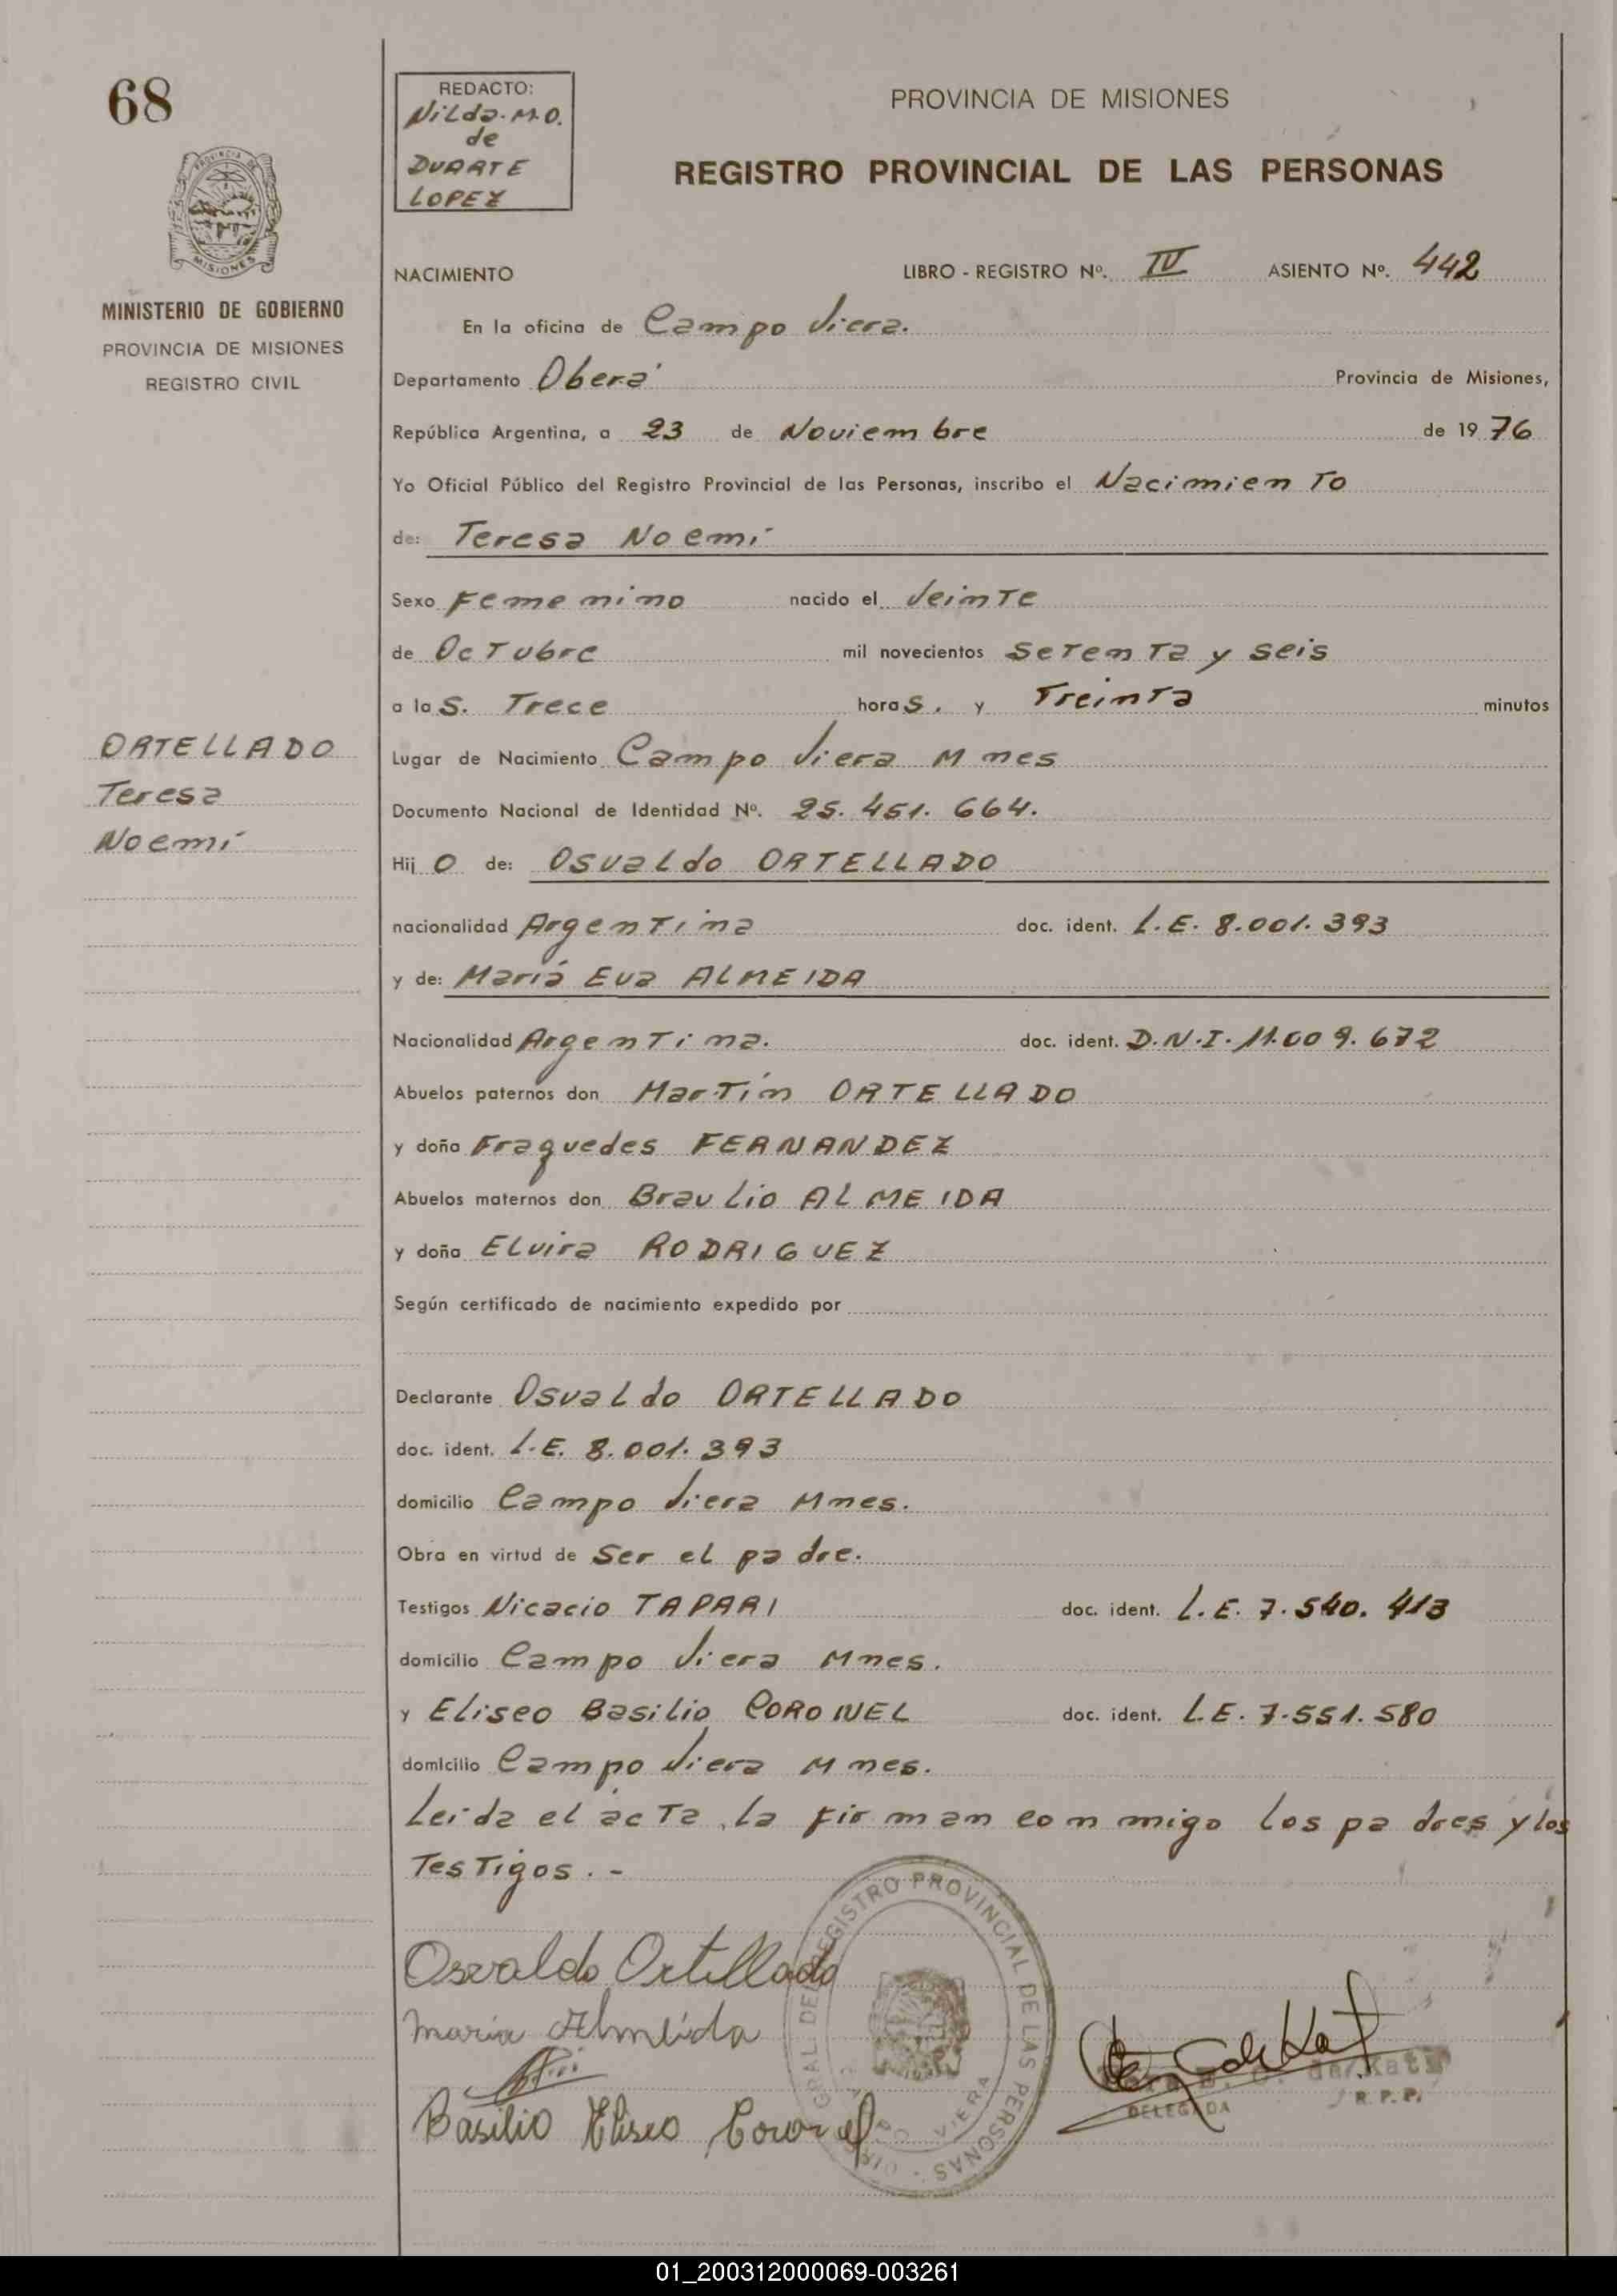 68
REDACTO:
Nilda. M.O.
de
DUARTE
LOPEZ
PROVINCIA DE MISIONES
REGISTRO PROVINCIAL DE LAS PERSONAS
PROVINCIA DE
MISIONES
MINISTERIO DE GOBIERNO
PROVINCIA DE MISIONES
REGISTRO CIVIL
NACIMIENTO LIBRO - REGISTRO Nº. IV ASIENTO Nº. 442
En la oficina de Campo Viera.
Departamento Oberá Provincia de Misiones,
República Argentina, a 23 de Noviembre de 1976
Yo Oficial Público del Registro Provincial de las Personas, inscribo el Nacimiento
de: Teresa Noemí
Sexo Femenino nacido el Veinte
de Octubre mil novecientos setenta y seis
a las. Trece horas. y Treinta minutos
Lugar de Nacimiento Campo Viera Mnes
Documento Nacional de Identidad Nº. 25.451.664.
Hijo de: Osvaldo ORTELLADO
nacionalidad Argentina doc. ident. L.E. 8.001.393
y de: Mariá Eva ALMEIDA
Nacionalidad Argentina. doc. ident. D.N.I. 11.009.672
Abuelos paternos don Martín ORTELLADO
y doña Fraguedes FERNANDEZ
Abuelos maternos don Braulio ALMEIDA
y doña Elvira RODRIGUEZ
Según certificado de nacimiento expedido por
Declarante Osvaldo ORTELLADO
doc. ident. L.E. 8.001.393
domicilio Campo Viera Mnes.
Obra en virtud de ser el padre.
Testigos Nicacio TAPARI doc. ident. L.E. 7.540.413
domicilio Campo Viera Mnes.
y Eliseo Basilio CORONEL doc. ident. L.E. 7.551.580
domicilio Campo Viera Mnes.
Leida el acta, la firman conmigo los padres y los
Testigos. -
ORTELLADO
Teresa
Noemí
Osvaldo Ortellado
maria Almeida
Basilio Eliseo Coronel
REGISTRO PROVINCIAL DE LAS PERSONAS
VIERA
de Kat
DELEGADA
R.P.P.
01_200312000069-003261